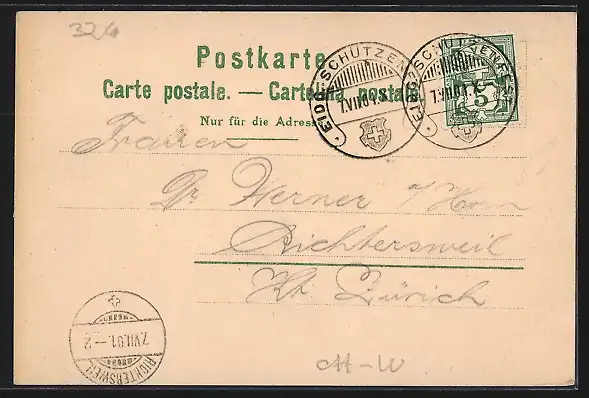 324
Postkarte.
Carte postale. — Cartolina postale.
Nur für die Adresse
EIDG. SCHÜTZENFEST
7.VII.01
EIDG. SCHÜTZENFEST LUZERN
7.VII.01
5
Frauen
Dr Werner a/Horn
Richtersweil
Kt. Zürich
7.VII.01.—2
RICHTERSWEIL
CH-W